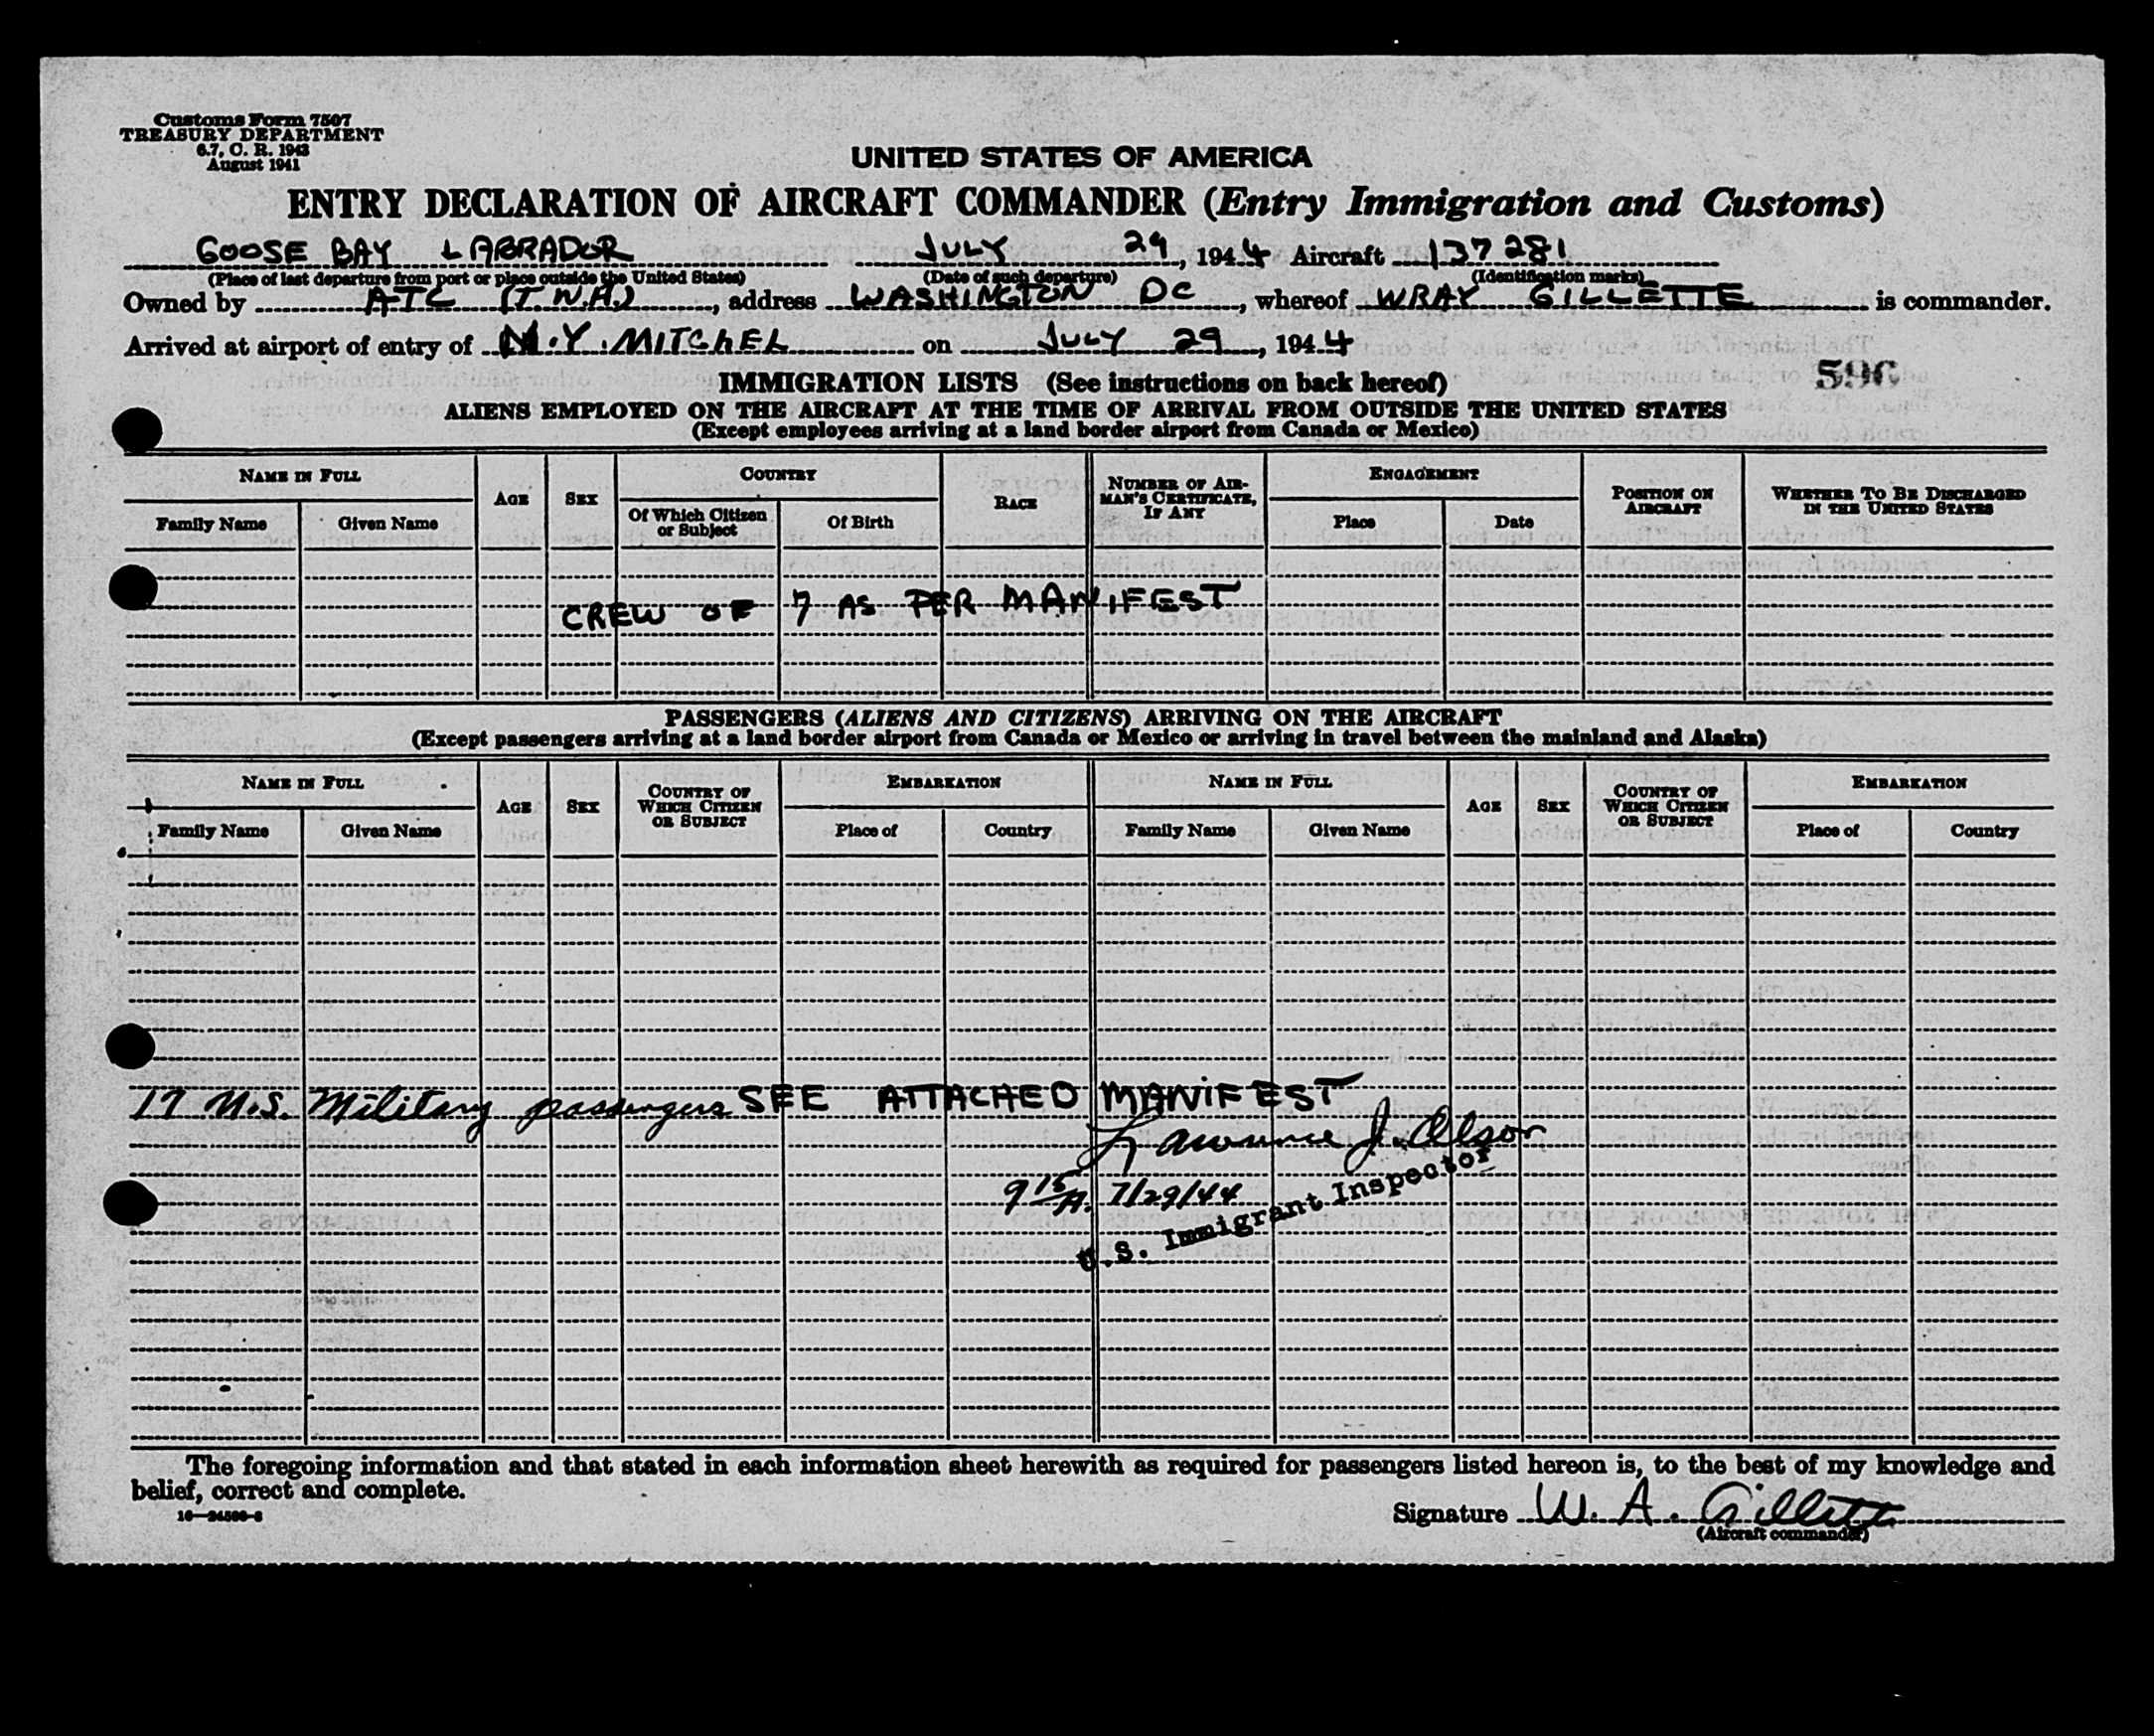 Customs Form 7507
TREASURY DEPARTMENT
6.7, C. R. 1943
August 1941
UNITED STATES OF AMERICA
ENTRY DECLARATION OF AIRCRAFT COMMANDER (Entry Immigration and Customs)
GOOSE BAY LABRADOR JULY 29, 1944 Aircraft 137281
(Place of last departure from port or place outside the United States) (Date of such departure) (Identification marks)
Owned by ATC (T.W.A.), address WASHINGTON DC, whereof WRAY GILLETTE is commander.
Arrived at airport of entry of N.Y. MITCHEL on JULY 29, 1944
IMMIGRATION LISTS (See instructions on back hereof)
ALIENS EMPLOYED ON THE AIRCRAFT AT THE TIME OF ARRIVAL FROM OUTSIDE THE UNITED STATES
(Except employees arriving at a land border airport from Canada or Mexico)
NAME IN FULL AGE SEX COUNTRY RACE NUMBER OF AIRMAN'S CERTIFICATE, IF ANY ENGAGEMENT POSITION ON AIRCRAFT WHETHER TO BE DISCHARGED IN THE UNITED STATES
Family Name Given Name Of Which Citizen or Subject Of Birth Place Date
CREW OF 7 AS PER MANIFEST
PASSENGERS (ALIENS AND CITIZENS) ARRIVING ON THE AIRCRAFT
(Except passengers arriving at a land border airport from Canada or Mexico or arriving in travel between the mainland and Alaska)
NAME IN FULL AGE SEX COUNTRY OF WHICH CITIZEN OR SUBJECT EMBARKATION NAME IN FULL AGE SEX COUNTRY OF WHICH CITIZEN OR SUBJECT EMBARKATION
Family Name Given Name Place of Country Family Name Given Name Place of Country
17 U.S. Military passengers SEE ATTACHED MANIFEST
Lawrence J. Olson
9 15 A. 7/29/44
U.S. Immigrant Inspector
The foregoing information and that stated in each information sheet herewith as required for passengers listed hereon is, to the best of my knowledge and
belief, correct and complete.
Signature W. A. Gillette
(Aircraft commander)